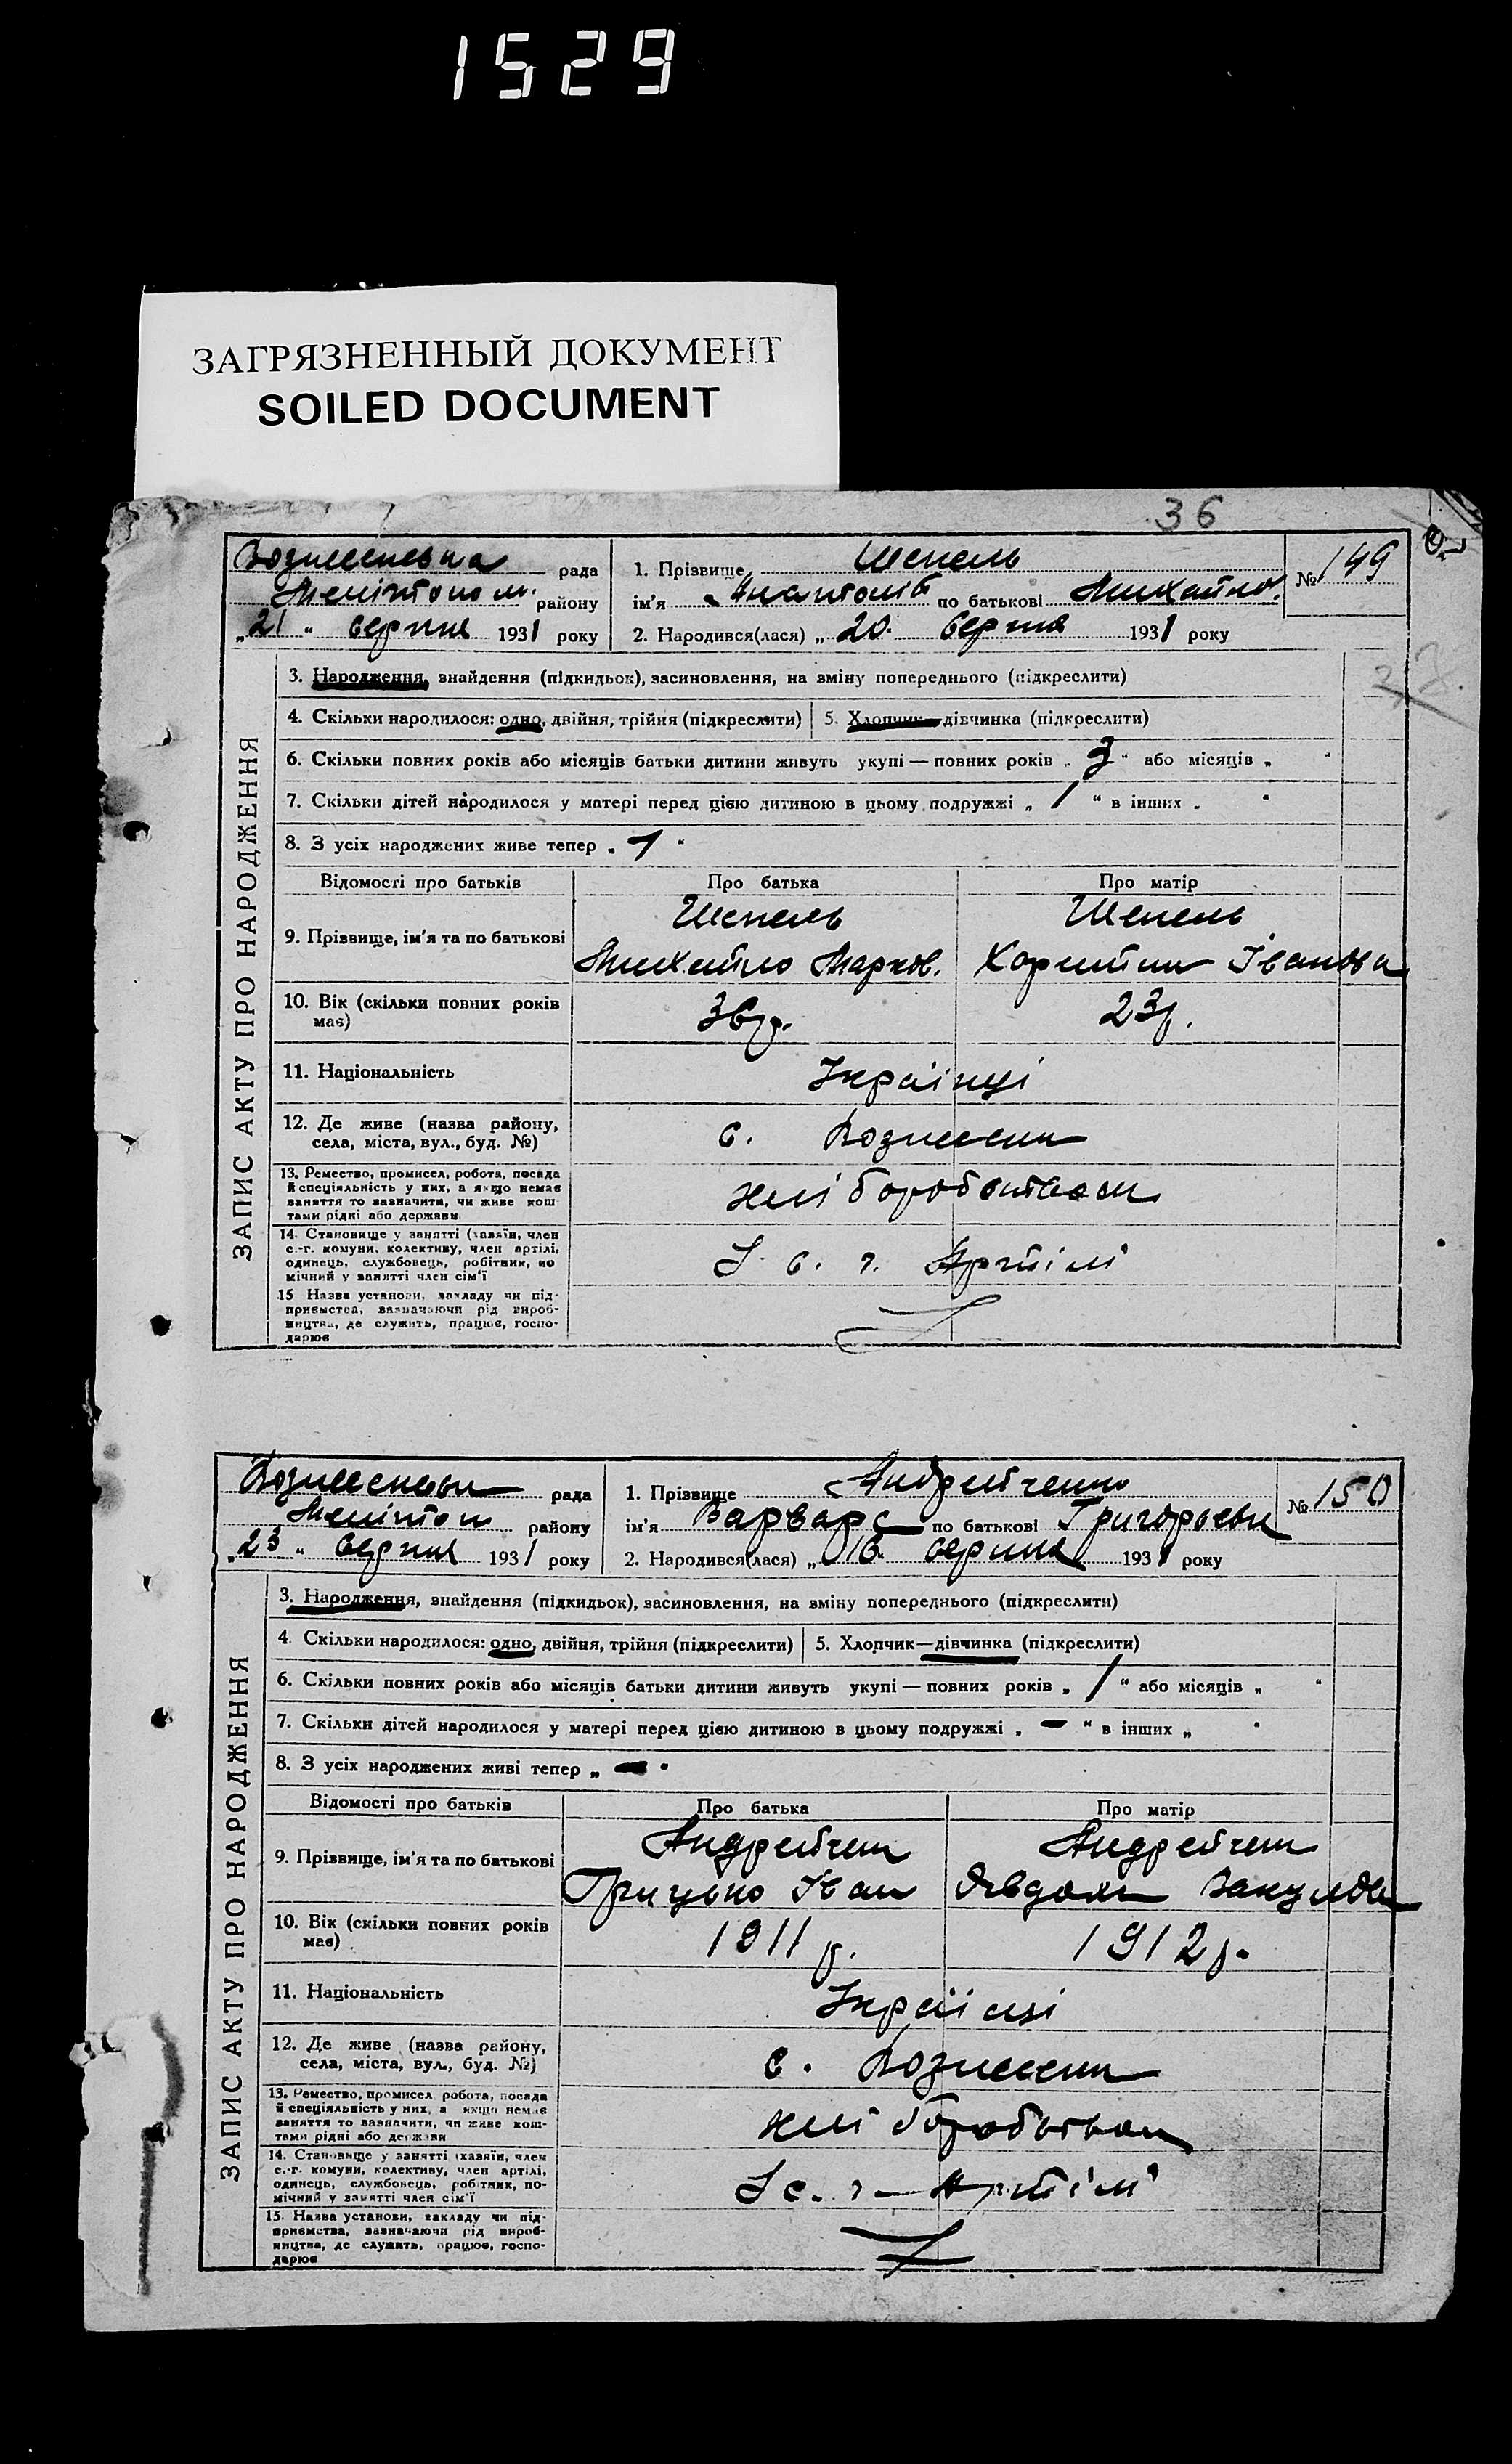 1529
ЗАГРЯЗНЕННЫЙ ДОКУМЕНТ
SOILED DOCUMENT
36
Вознесенська рада
Мелітопол. району
„21“ серпня 1931 року
1. Прізвище Шепель
ім'я Анатолій по батькові Михайлов.
2. Народився(лася) „20. серпня 1931 року
№ 149
ЗАПИС АКТУ ПРО НАРОДЖЕННЯ
3. Народження, знайдення (підкидьок), засиновлення, на зміну попереднього (підкреслити)
4. Скільки народилося: одно, двійня, трійня (підкреслити) 5. Хлопчик—дівчинка (підкреслити)
6. Скільки повних років або місяців батьки дитини живуть укупі — повних років „3“ або місяців „ “
7. Скільки дітей народилося у матері перед цією дитиною в цьому подружжі „1“ в інших „ “
8. З усіх народжених живе тепер „1“
Відомості про батьків Про батька Про матір
9. Прізвище, ім'я та по батькові
Шепель Шепель
Михайло Марков. Іванова
10. Вік (скільки повних років
має)
36р. 23р.
11. Національність
Українці
12. Де живе (назва району,
села, міста, вул., буд. №)
с. Вознесен
13. Ремество, промисел, робота, посада
й спеціяльність у них, а якщо немає
заняття то зазначити, чи живе кош-
тами рідні або держави
14. Становище у занятті (хазяїн, член
с.-г. комуни, колективу, член артілі,
одинець, службовець, робітник, по
мічний у занятті член сім'ї
с. г. Артілі
15 Назва установи, закладу чи під-
приємства, зазначаючи рід вироб-
ництва, де служить, працює, госпо-
дарює
рада
району
„23“ серпня 1931 року
1. Прізвище Андрейченко
ім'я Варвара по батькові Григорьевн
2. Народився(лася) „16. серпня 1931 року
№ 150
ЗАПИС АКТУ ПРО НАРОДЖЕННЯ
3. Народження, знайдення (підкидьок), засиновлення, на зміну попереднього (підкреслити)
4. Скільки народилося: одно, двійня, трійня (підкреслити) 5. Хлопчик—дівчинка (підкреслити)
6. Скільки повних років або місяців батьки дитини живуть укупі — повних років „1“ або місяців „ “
7. Скільки дітей народилося у матері перед цією дитиною в цьому подружжі „—“ в інших „ “
8. З усіх народжених живі тепер „—“
Відомості про батьків Про батька Про матір
9. Прізвище, ім'я та по батькові
Андрейчен Андрейчен
Грицько Іван Явдоха
10. Вік (скільки повних років
має)
1911 р. 1912 р.
11. Національність
Українці
12. Де живе (назва району,
села, міста, вул., буд. №)
с. Вознесен
13. Ремество, промисел робота, посада
й спеціяльність у них, а якщо немає
заняття то зазначити, чи живе кош-
тами рідні або держави
14. Становище у занятті (хазяїн, член
с.-г. комуни, колективу, член артілі,
одинець, службовець, робітник, по-
мічний у занятті член сім'ї
с. г. Артілі
15. Назва установи, закладу чи під-
приємства, зазначаючи рід вироб-
ництва, де служить, працює, госпо-
дарює